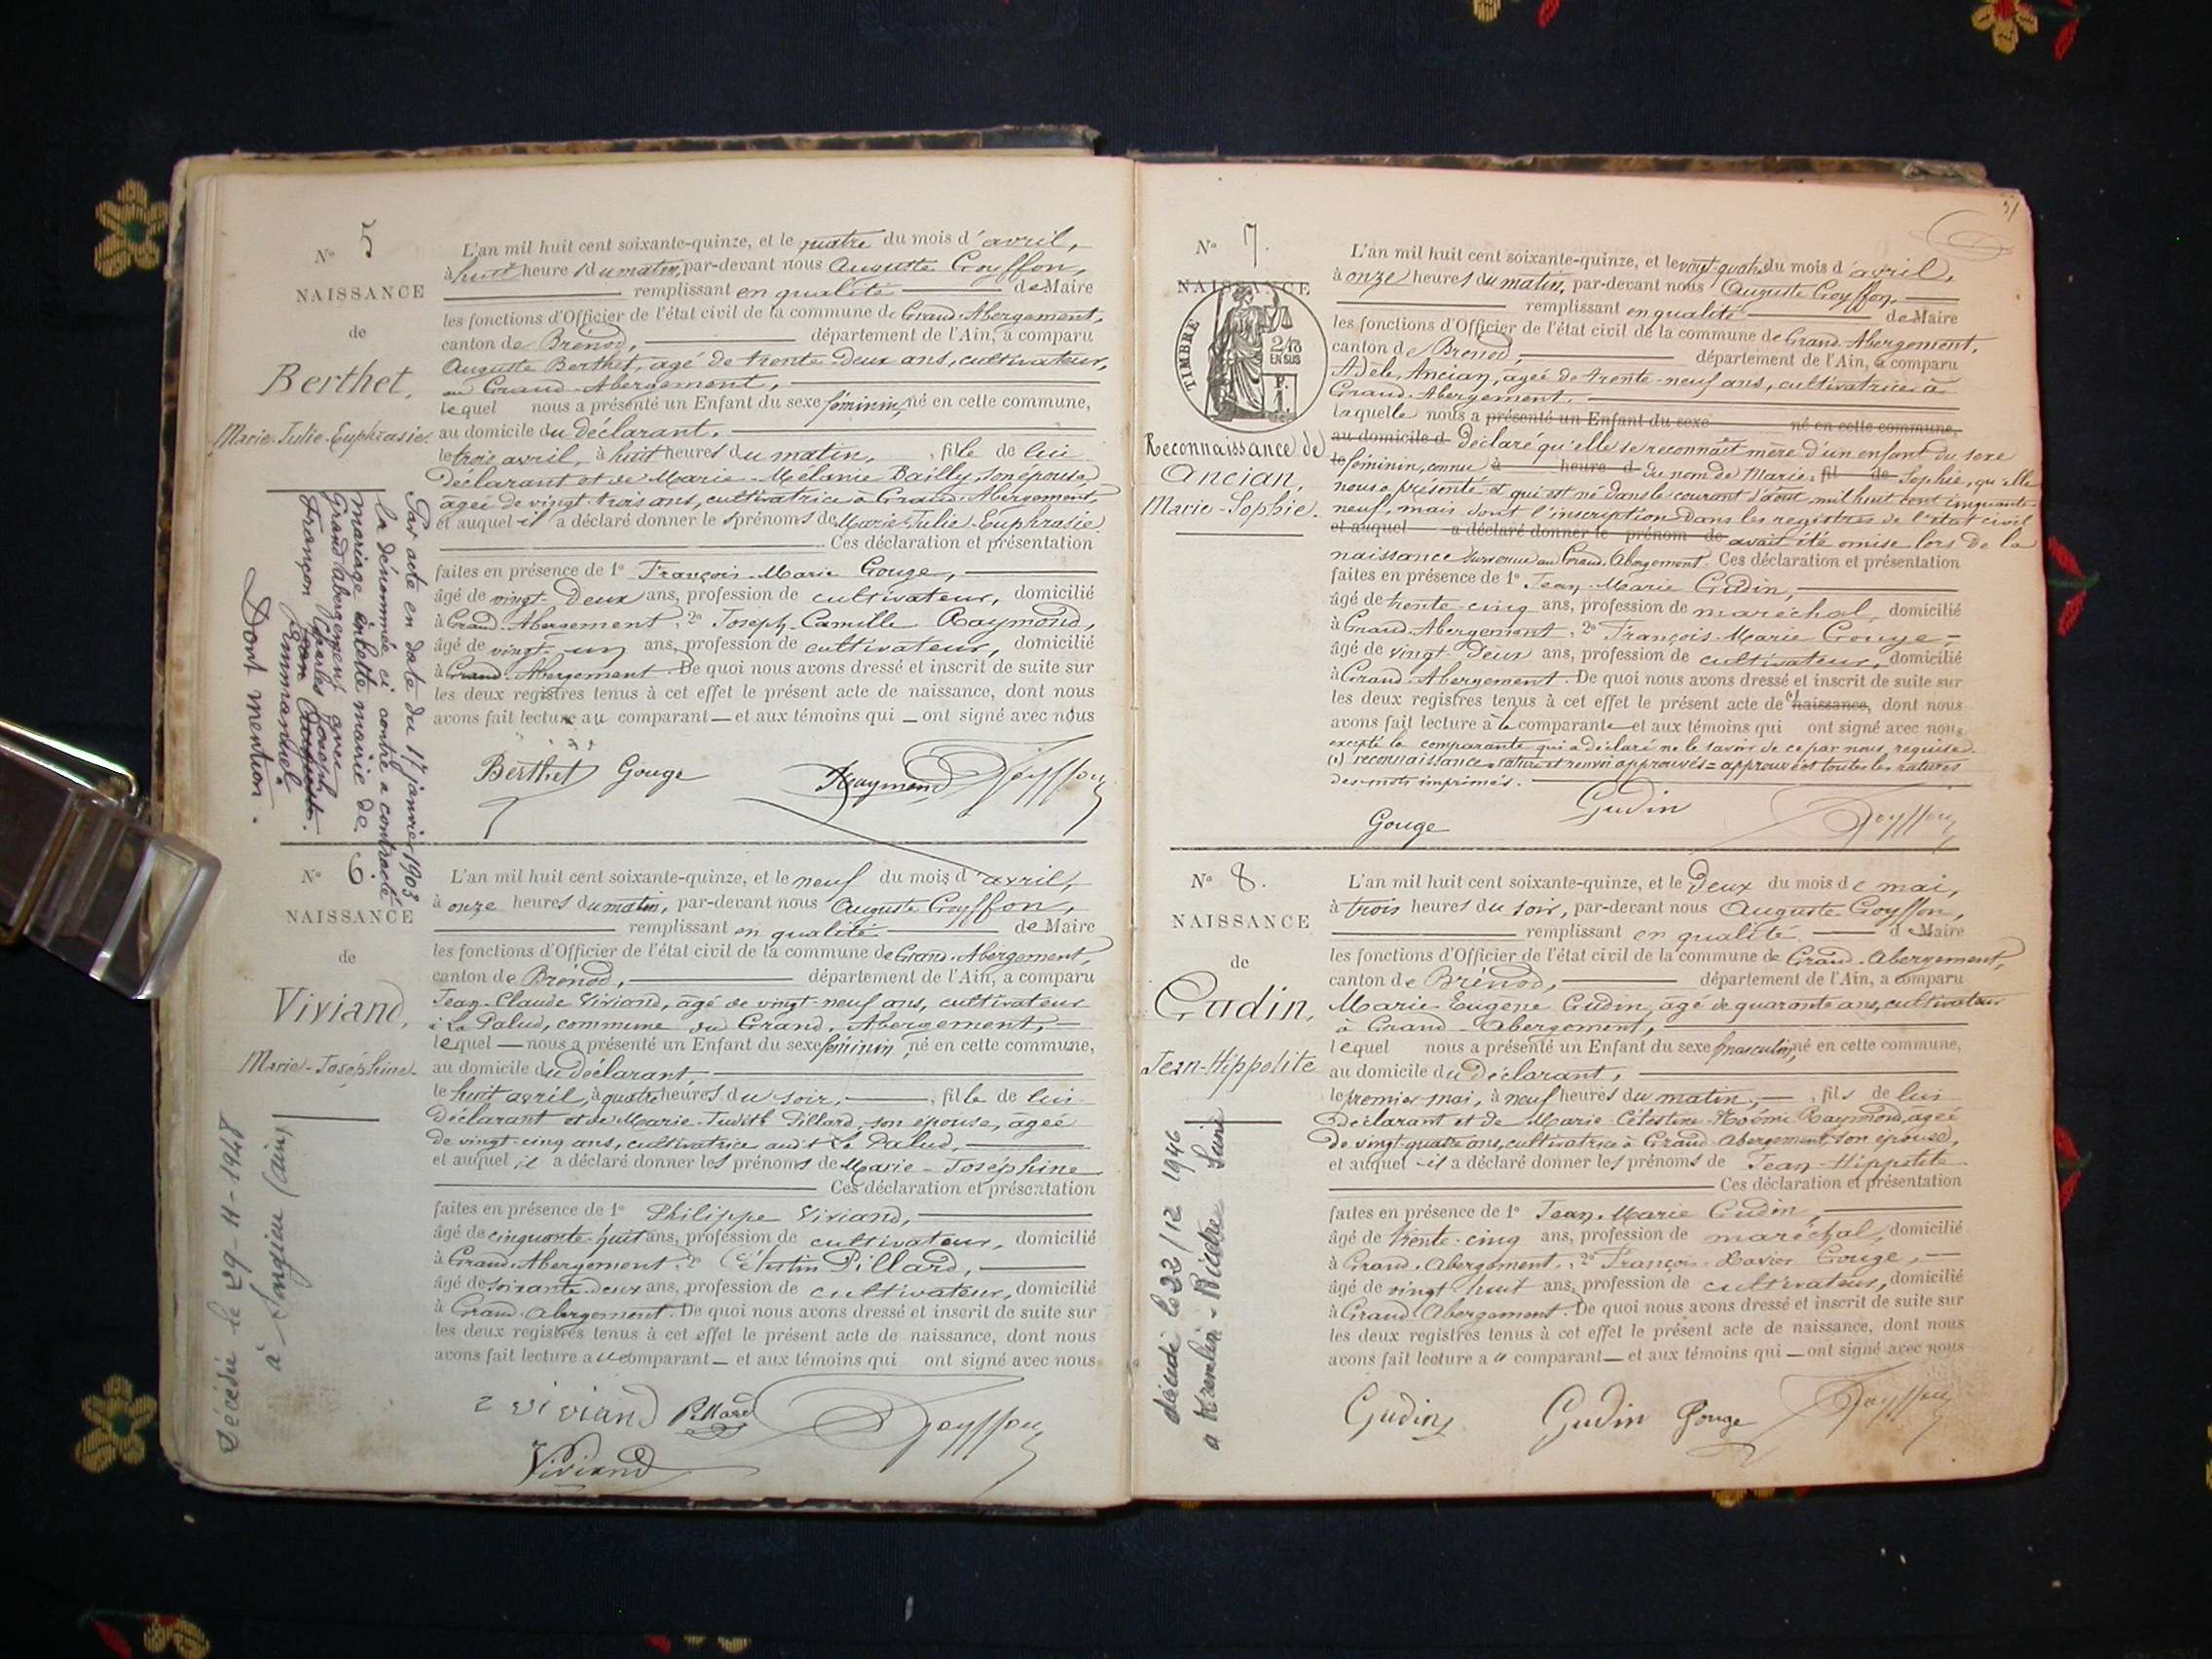 N° 5
NAISSANCE
de
Berthet,
Marie-Julie-Euphrasie.
L'an mil huit cent soixante-quinze, et le quatre du mois d'avril,
à huit heures du matin, par-devant nous Auguste Goyffon,
remplissant en qualité de Maire
les fonctions d'Officier de l'état civil de la commune de Grand-Abergement,
canton de Brénod, département de l'Ain, a comparu
Auguste Berthet, agé de trente-deux ans, cultivateur,
au Grand-Abergement,
lequel nous a présenté un Enfant du sexe féminin, né en cette commune,
au domicile du déclarant,
le trois avril, à huit heures du matin, , fille de lui
déclarant et de Marie-Mélanie Bailly, son épouse,
agée de vingt-trois ans, cultivatrice à Grand-Abergement,
et auquel il a déclaré donner les prénoms de Marie-Julie-Euphrasie
Ces déclaration et présentation
faites en présence de 1° François-Marie Gouge,
âgé de vingt-deux ans, profession de cultivateur, domicilié
à Grand-Abergement, 2° Joseph-Camille Raymond,
âgé de vingt-un ans, profession de cultivateur, domicilié
à Grand-Abergement. De quoi nous avons dressé et inscrit de suite sur
les deux registres tenus à cet effet le présent acte de naissance, dont nous
avons fait lecture au comparant et aux témoins qui ont signé avec nous
Berthet Gouge Raymond Goyffon
Par acte en date du 17 janvier 1903
la dénommée ci contre a contracté
mariage en cette mairie de
Grand abergement avec
Charles Joseph
françon
Emmanuel
Dont mention.
N° 6
NAISSANCE
de
Viviand,
Marie-Joséphine.
L'an mil huit cent soixante-quinze, et le neuf du mois d'avril,
à onze heures du matin, par-devant nous Auguste Goyffon,
remplissant en qualité de Maire
les fonctions d'Officier de l'état civil de la commune de Grand-Abergement,
canton de Brénod, département de l'Ain, a comparu
Jean-Claude Viviand, agé de vingt-neuf ans, cultivateur
à La Palud, commune du Grand-Abergement,
lequel nous a présenté un Enfant du sexe féminin, né en cette commune,
au domicile du déclarant,
le huit avril, à quatre heures du soir, , fille de lui
déclarant et de Marie-Judith Pillard, son épouse, agée
de vingt-cinq ans, cultivatrice audit La Palud,
et auquel il a déclaré donner les prénoms de Marie-Joséphine
Ces déclaration et présentation
faites en présence de 1° Philippe Viviand,
âgé de cinquante-huit ans, profession de cultivateur, domicilié
à Grand-Abergement, 2° Célestin Pillard,
âgé de soixante-deux ans, profession de cultivateur, domicilié
à Grand-Abergement. De quoi nous avons dressé et inscrit de suite sur
les deux registres tenus à cet effet le présent acte de naissance, dont nous
avons fait lecture au comparant et aux témoins qui ont signé avec nous
viviand Pillard Goyffon
Viviand
Décédée le 29-11-1948
à Songieu (Ain)
51
N° 7.
NAISSANCE
TIMBRE
2/10
EN SUS
Reconnaissance de
Ancian,
Marie-Sophie.
L'an mil huit cent soixante-quinze, et le vingt-quatre du mois d'avril,
à onze heures du matin, par-devant nous Auguste Goyffon,
remplissant en qualité de Maire
les fonctions d'Officier de l'état civil de la commune de Grand-Abergement,
canton de Brénod, département de l'Ain, a comparu
Adèle Ancian, âgée de trente-neuf ans, cultivatrice à
Grand-Abergement,
laquelle nous a présenté un Enfant du sexe né en cette commune,
au domicile d déclaré qu'elle se reconnaît mère d'un enfant du sexe
le féminin, connu à heure d du nom de Marie, fil de Sophie, qu'elle
nous a présenté et qui est né dans le courant d'août mil huit cent cinquante-
neuf, mais dont l'inscription dans les registres de l'état civil
et auquel a déclaré donner le prénom de avait été omise lors de la
naissance survenue au Grand-Abergement. Ces déclaration et présentation
faites en présence de 1° Jean-Marie Gudin,
âgé de trente-cinq ans, profession de maréchal, domicilié
à Grand-Abergement, 2° François-Marie Gouge
âgé de vingt-deux ans, profession de cultivateur, domicilié
à Grand-Abergement. De quoi nous avons dressé et inscrit de suite sur
les deux registres tenus à cet effet le présent acte de (1) naissance, dont nous
avons fait lecture à la comparante et aux témoins qui ont signé avec nous
excepté la comparante qui a déclaré ne le savoir de ce par nous requise.
(1) reconnaissance rature et renvoi approuvés = approuvées toutes les ratures
des mots imprimés.
Gouge Gudin Goyffon
N° 8.
NAISSANCE
de
Gudin,
Jean-Hippolite
L'an mil huit cent soixante-quinze, et le deux du mois de mai,
à trois heures du soir, par-devant nous Auguste Goyffon,
remplissant en qualité de Maire
les fonctions d'Officier de l'état civil de la commune de Grand-Abergement,
canton de Brénod, département de l'Ain, a comparu
Marie-Eugène Gudin, agé de quarante ans, cultivateur
à Grand-Abergement,
lequel nous a présenté un Enfant du sexe masculin, né en cette commune,
au domicile du déclarant,
le premier mai, à neuf heures du matin, , fils de lui
déclarant et de Marie-Célestine-Noémi Raymond, agée
de vingt-quatre ans, cultivatrice à Grand-Abergement, son épouse,
et auquel il a déclaré donner les prénoms de Jean-Hippolite
Ces déclaration et présentation
faites en présence de 1° Jean-Marie Gudin,
âgé de trente-cinq ans, profession de maréchal, domicilié
à Grand-Abergement, 2° François-Xavier Gouge,
âgé de vingt-huit ans, profession de cultivateur, domicilié
à Grand-Abergement. De quoi nous avons dressé et inscrit de suite sur
les deux registres tenus à cet effet le présent acte de naissance, dont nous
avons fait lecture au comparant et aux témoins qui ont signé avec nous
Gudin Gudin Gouge Goyffon
décédé le 22/12 1946
a Kremlin-Bicêtre Seine